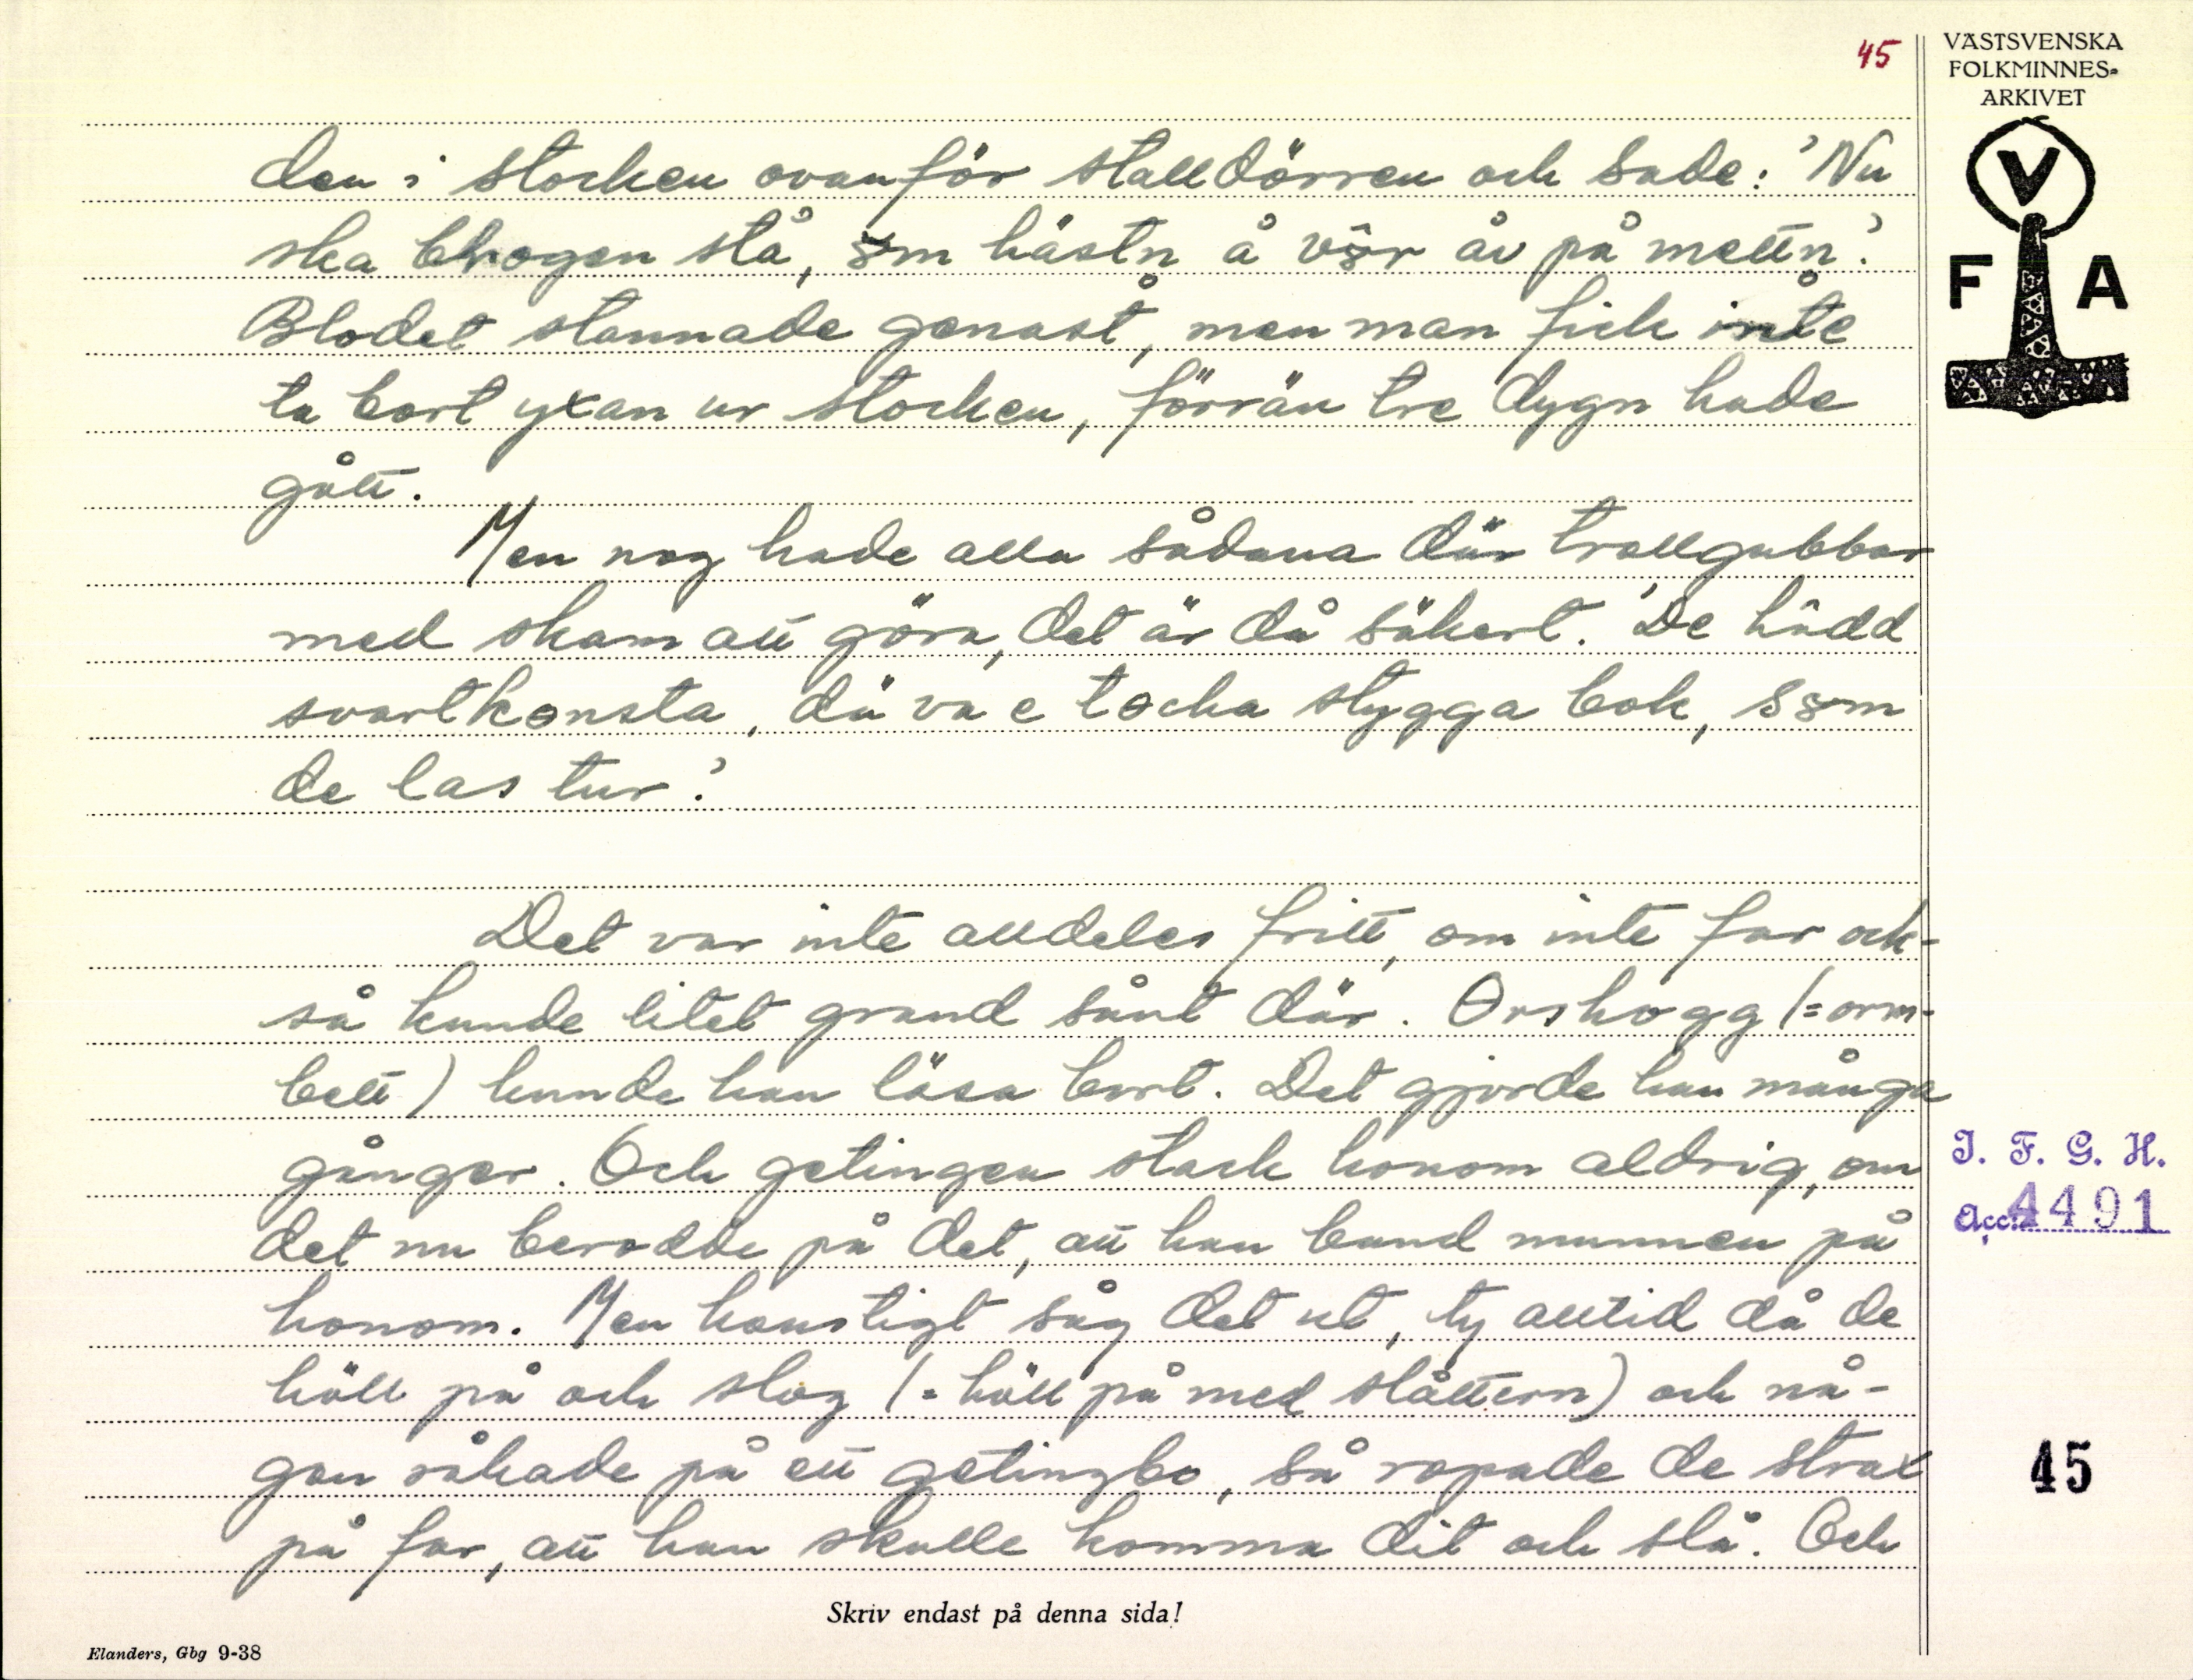 45
VÄSTSVENSKA
FOLKMINNES-
ARKIVET
V
F A
den i stocken ovanför stalldörren och sade: 'Nu
ska stå, hästn å vör åv på mettn.'
Blodet stannade genast, men man fick inte
ta bort yxan ur stocken, förrän tre dygn hade
gått.
Men nog hade alla sådana där trollgubbar
med skam att göra, det är då säkert. 'De hådd
svartkonsta, dä va e tocka stygga bok, som
de las tur.'
Det var inte alldeles fritt, om inte far ock-
så kunde litet grand sånt där. Orshogg (= orm-
bett) kunde han läsa bort. Det gjorde han många
gånger. Och getingen stack honom aldrig, om
det nu berodde på det, att han band munnen på
honom. Men konstigt såg det ut, ty alltid då de
höll på och slog (= höll på med slåttern) och nå-
gon råkade på ett getingbo, så ropade de strax
på far, att han skulle komma dit och slå. Och
I. F. G. H.
Acc. 4491
45
Skriv endast på denna sida!
Elanders, Gbg 9-38